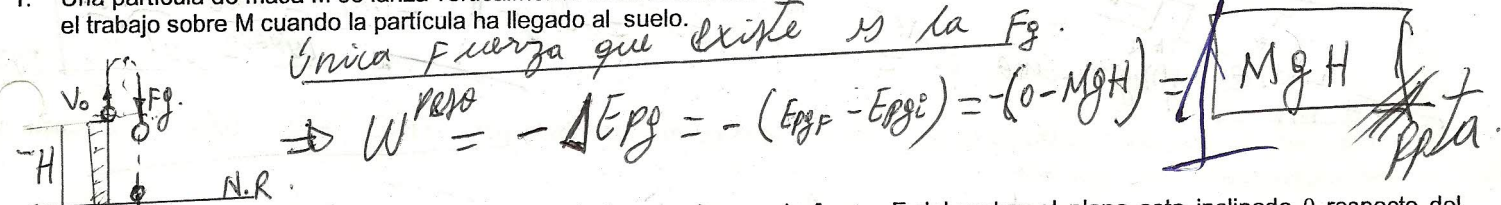 el trabajo sobre M cuando la partícula ha llegado al suelo.
Única Fuerza que existe es la Fg.
Vo Fg.
⇒ W^peso = - ΔEpg = - (EpgF - Epgi) = -(0 - MgH) = MgH
Rpta.
H
N.R.